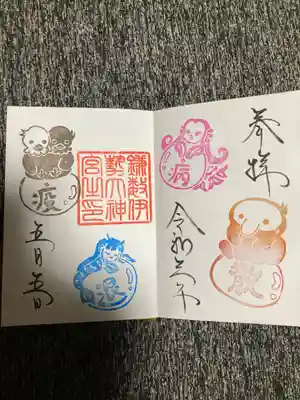 奉拝
病
散
令和
年
鎌数伊
勢大神
宮之印
疫
退
五月
日